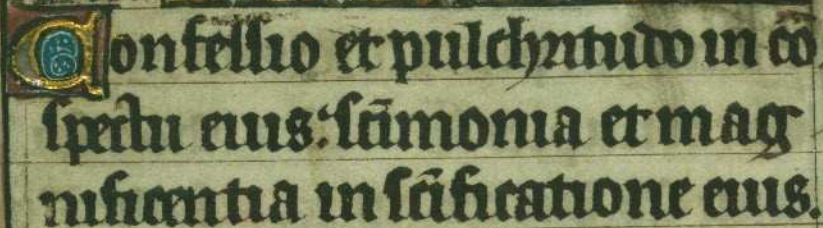 Confessio et pulchritudo in co
spectu eius: scimonia et mag
nificentia in scificatione eius.